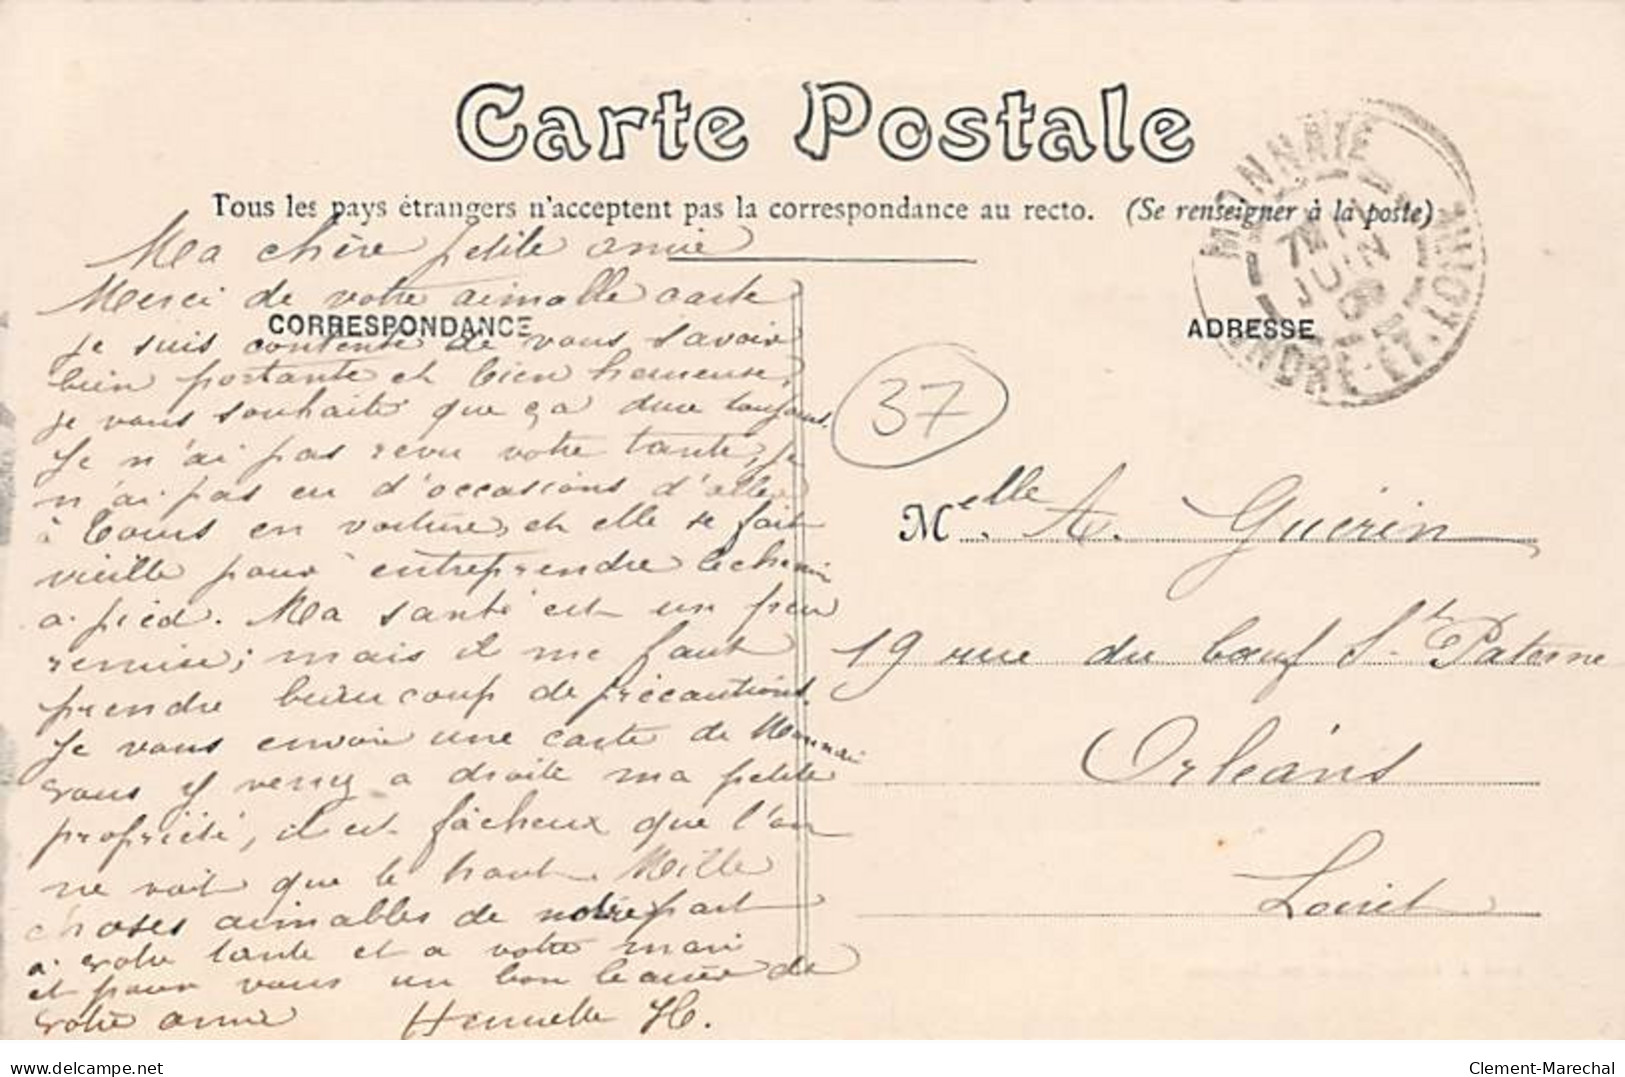 Carte Postale
Tous les pays étrangers n'acceptent pas la correspondance au recto. (Se renseigner à la poste)
MONNAIE
JUIN
INDRE-ET-LOIRE
CORRESPONDANCE
ADRESSE
37
Ma chère petite amie
Merci de votre aimalle carte
je suis contente de vous savoir
bien portante et bien heureuse,
je vous souhaite que ça dure toujours.
Je n'ai pas revu votre tante, je
n'ai pas eu d'occasions d'aller
à Tours en voiture, et elle se fait
vieille pour entreprendre le chemin
a pied. Ma santé est un peu
remise; mais il me faut
prendre beaucoup de précautions.
Je vous envoie une carte de Monnaie
vous y verrez a droite ma petite
propriété, il est fâcheux que l'on
ne voit que le haut. Mille
choses aimables de notre part
a votre tante et a votre mari
et pour vous un bon baiser de
votre amie Henriette H.
Melle. A. Guérin
19 rue du bœuf St Paterne
Orléans
Loiret
delcampe.net
Clement-Marechal